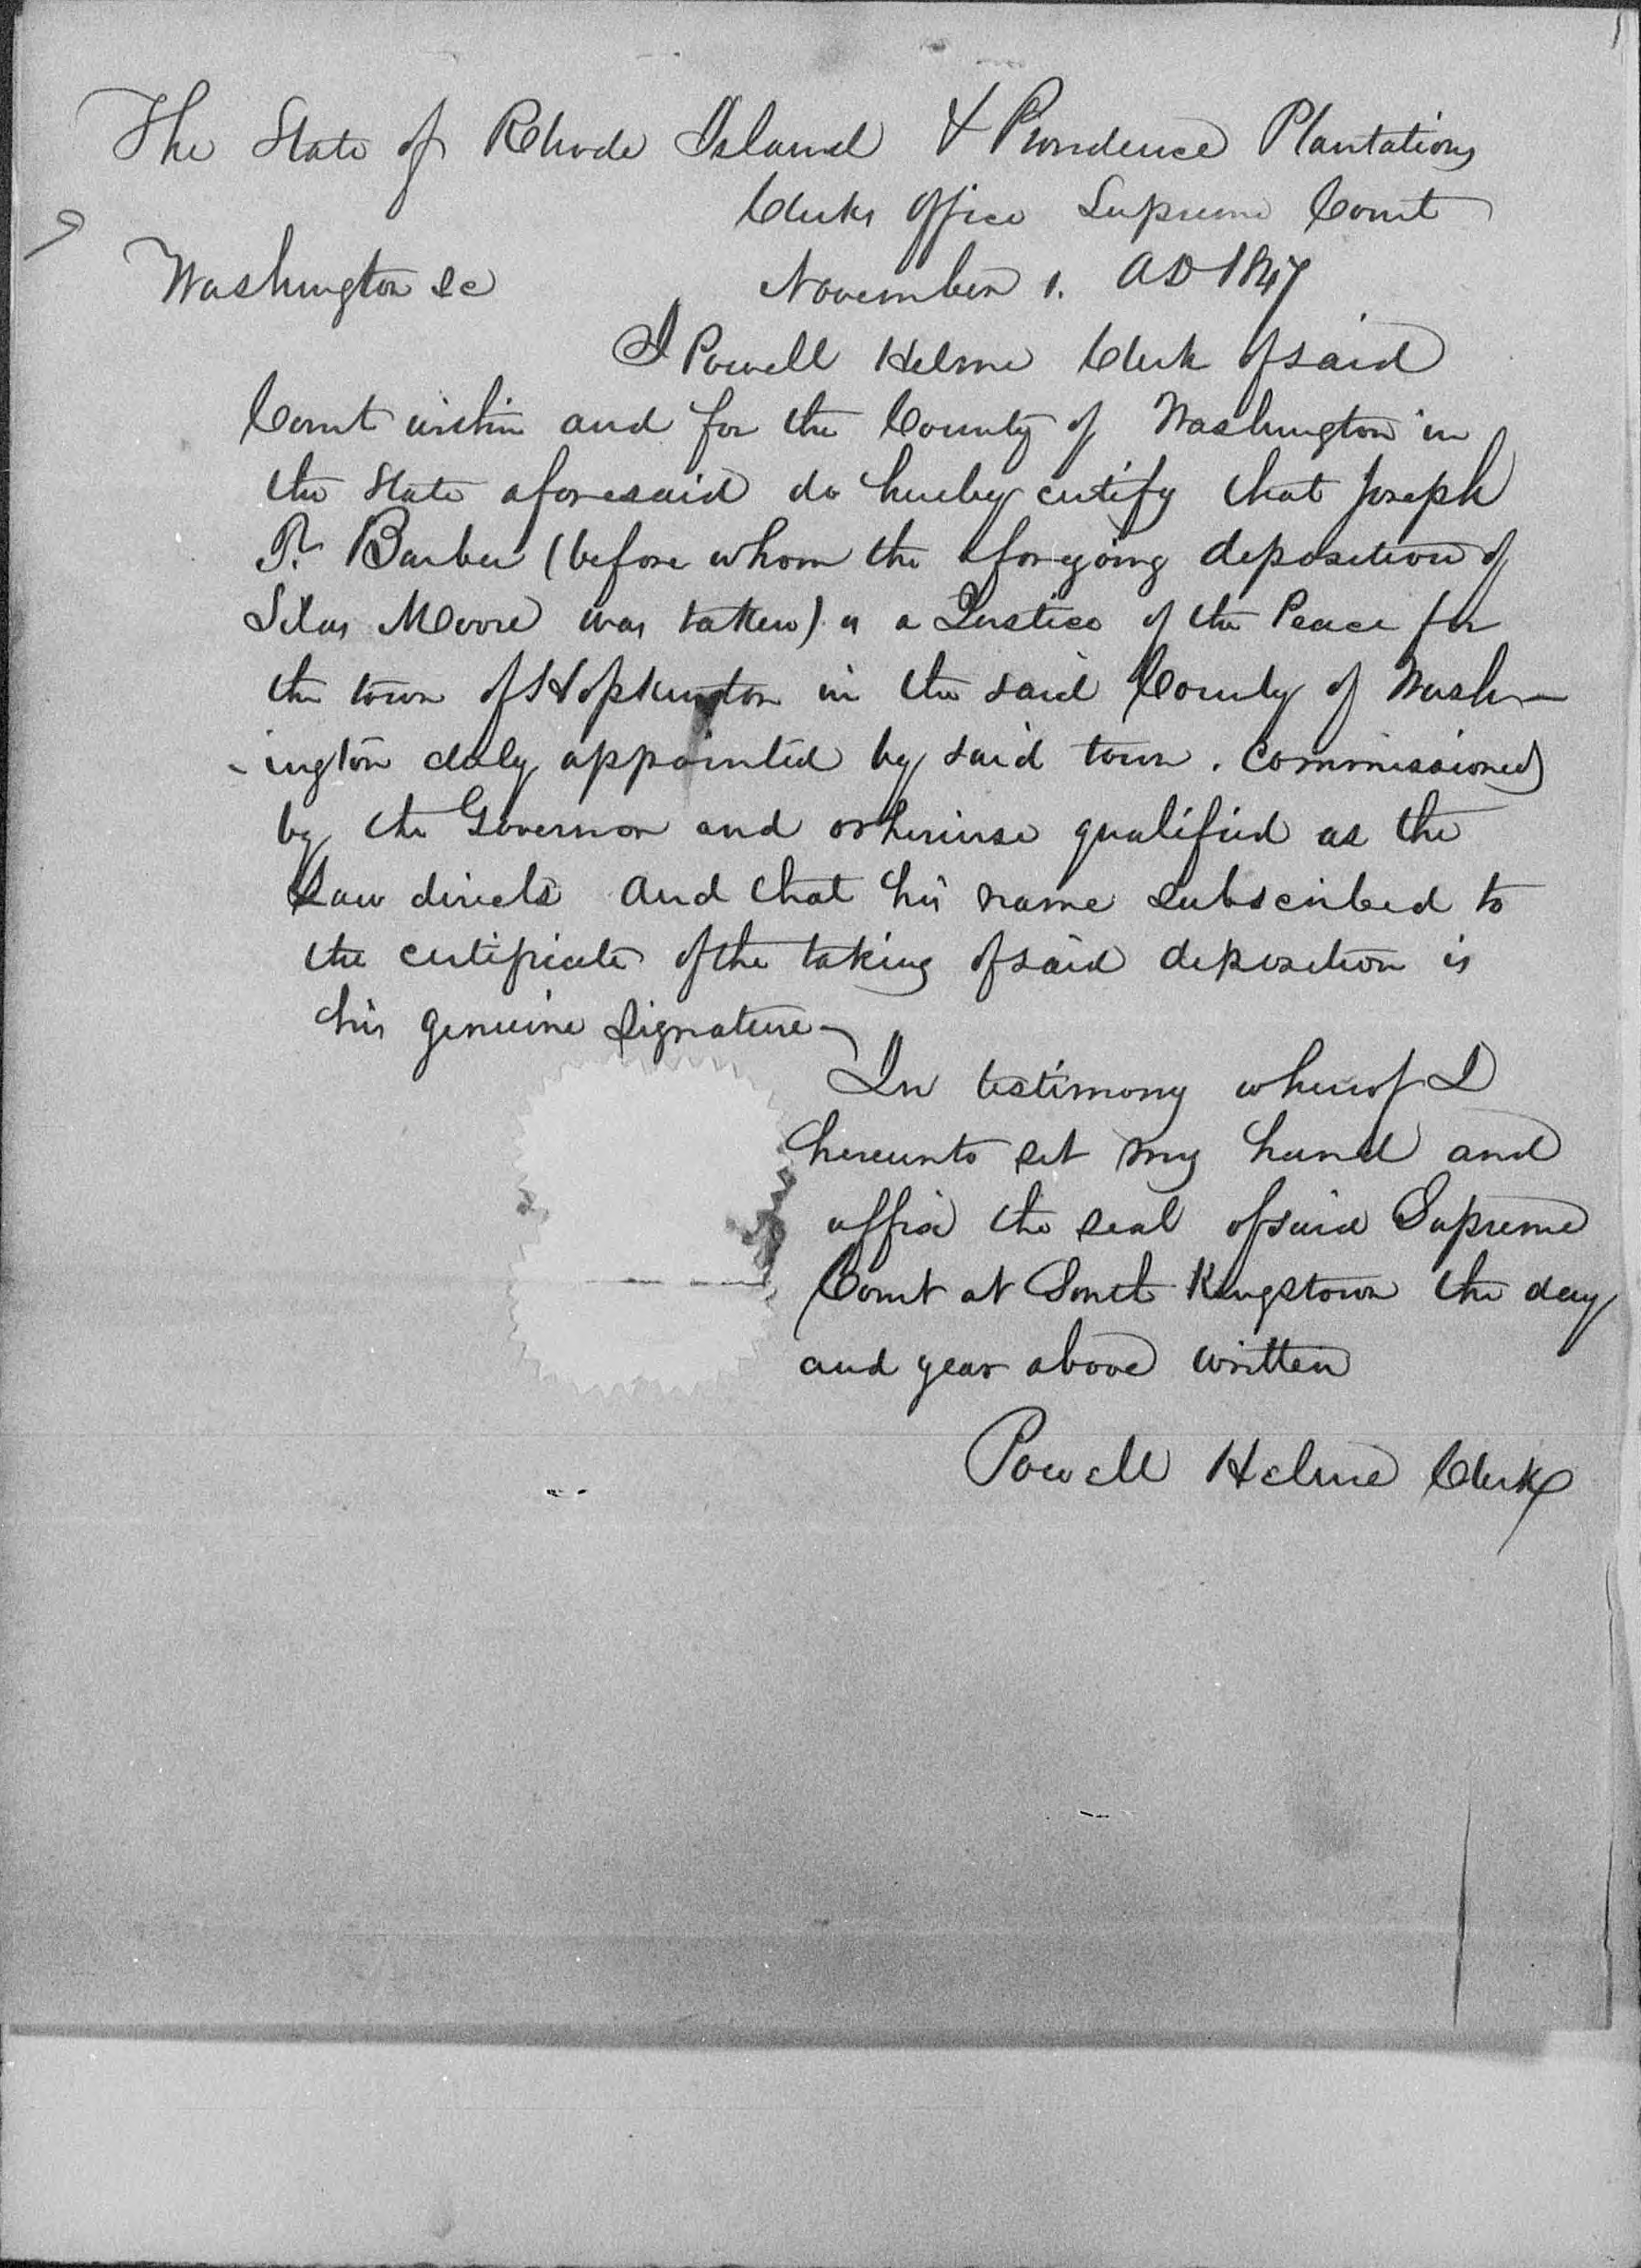 The State of Rhode Island & Providence Plantations
Clerks office Supreme Court
Washington Sc November 1. AD 1847
I Powell Helme Clerk of said
Court within and for the County of Washington in
the State aforesaid do hereby certify that Joseph
T. Barber (before whom the aforegoing deposition of
Silas Moore was taken) is a Justice of the Peace for
the town of Hopkinton in the said County of Wash-
-ington duly appointed by said town. Commissioned
by the Governor and otherwise qualified as the
Law directs and that his name subscribed to
the certificate of the taking of said deposition is
his genuine signature
In testimony whereof I
hereunto set my hand and
affix the seal of said Supreme
Court at South Kingstown the day
and year above written
Powell Helme Clerk